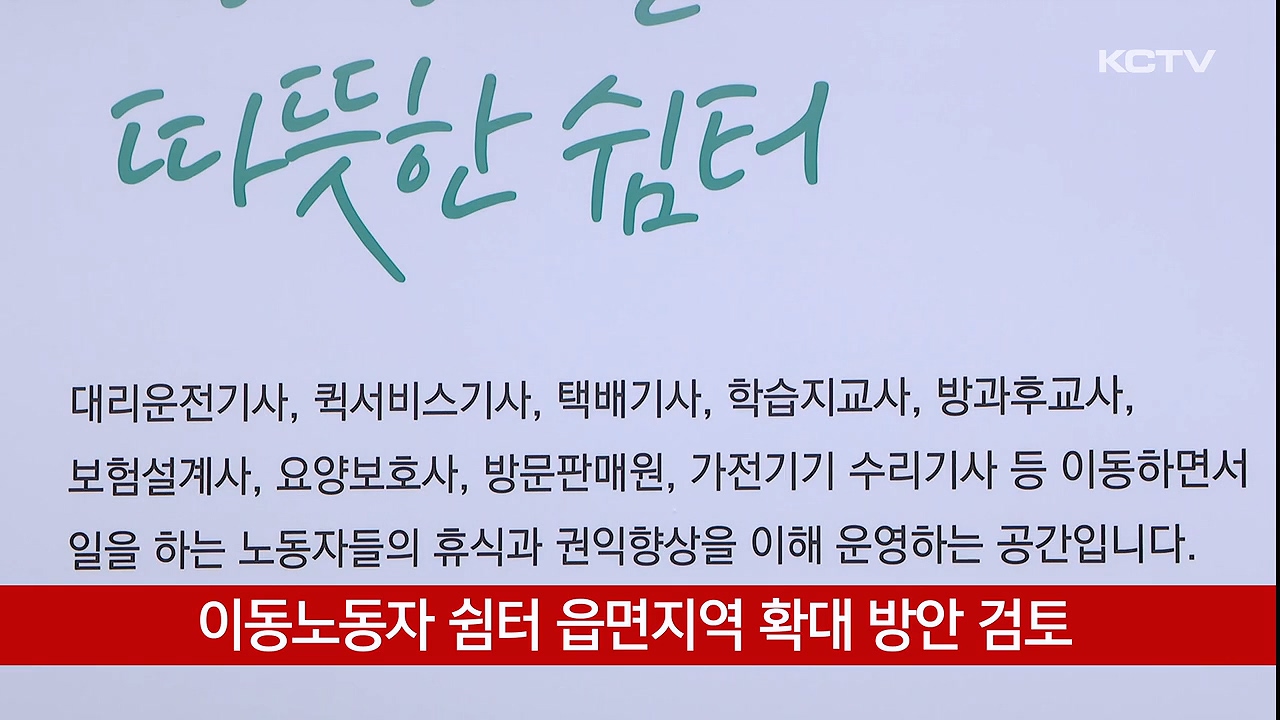 KCTV
따뜻한 쉼터
대리운전기사, 퀵서비스기사, 택배기사, 학습지교사, 방과후교사,
보험설계사, 요양보호사, 방문판매원, 가전기기 수리기사 등 이동하면서
일을 하는 노동자들의 휴식과 권익향상을 이해 운영하는 공간입니다.
이동노동자 쉼터 읍면지역 확대 방안 검토